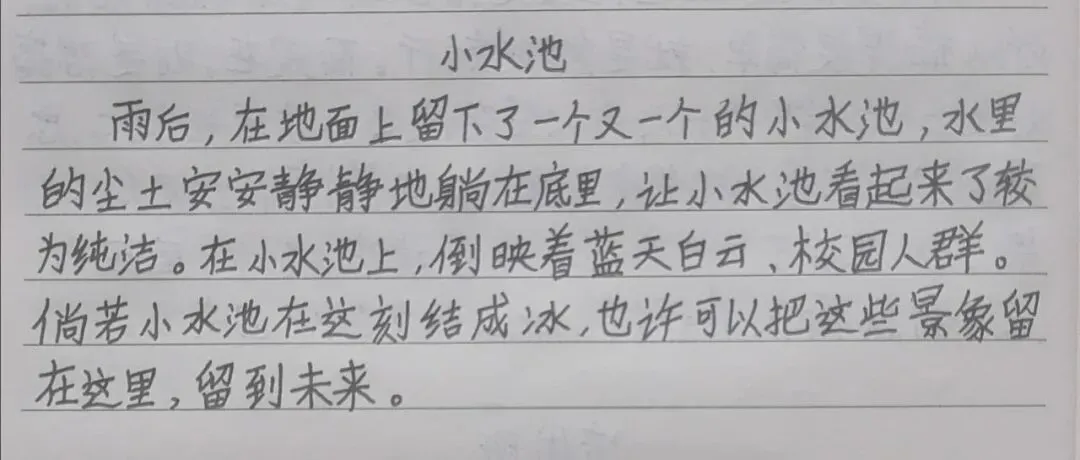 小水池
雨后，在地面上留下了一个又一个的小水池，水里
的尘土安安静静地躺在底里，让小水池看起来了较
为纯洁。在小水池上，倒映着蓝天白云、校园人群。
倘若小水池在这刻结成冰，也许可以把这些景象留
在这里，留到未来。